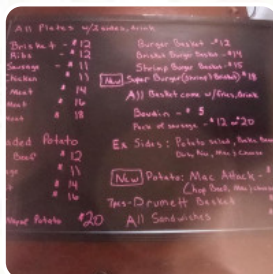 All Plates w/2 sides, drink
Brisket - $12
Ribs - $12
Sausage - $11
Chicken $11
Meat $14
Meat $16
Meat $18
Potato
Beef $12
$11
$14
$16
Potato $20
Burger Basket - $12
Brisket Burger Basket - $14
Shrimp Burger Basket - $15
New Super Burger (Shrimp) Basket) $18
All Basket come w/fries, drink
Boudin - $5
Pack of sausage - $12 $20
Ex Sides: Potato salad, Beans
Dirty Rice, Mac & Cheese
New Potato: Mac Attack - $
Chop Beef, Mac & cheese
7pcs - Drumett Basket $
All Sandwiches